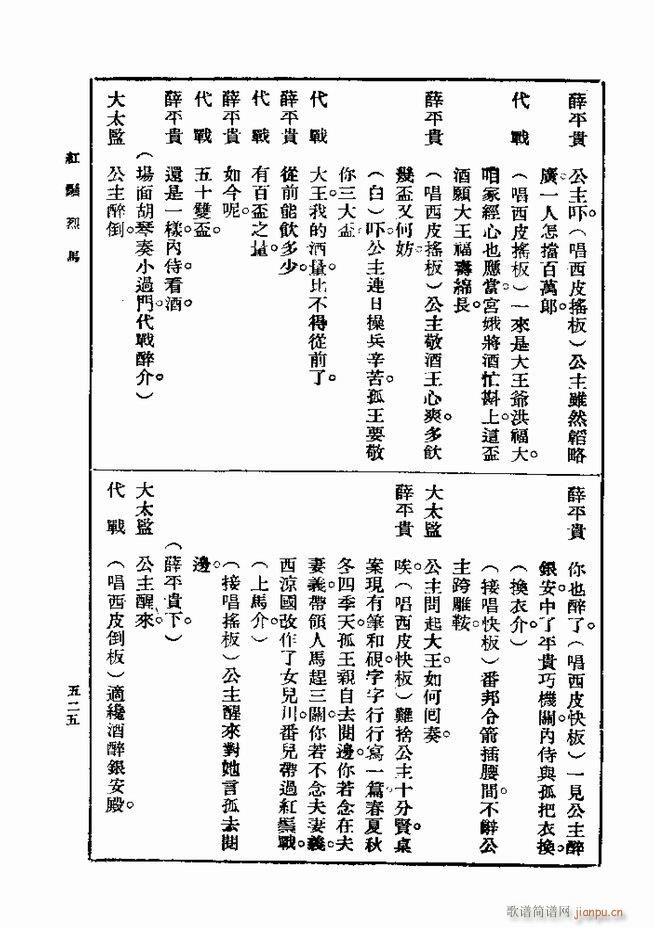 紅鬃烈馬
薛平貴 公主吓。(唱西皮搖板)公主雖然韜略
廣。一人怎擋百萬郎。
代戰 (唱西皮搖板)一來是大王爺洪福大。
咱家經心也應當。宮娥將酒忙斟上。這盃
酒願大王福壽綿長。
薛平貴 (唱西皮搖板)公主敬酒王心爽。多飲
幾盃又何妨。
(白)吓公主連日操兵辛苦。孤王要敬
你三大盃。
代戰 大王我的酒量比不得從前了。
薛平貴 從前能飲多少。
代戰 有百盃之量。
薛平貴 如今呢。
代戰 五十雙盃。
薛平貴 還是一樣。內侍看酒。
(場面胡琴奏小過門。代戰醉介)
大太監 公主醉倒。
薛平貴 你也醉了。(唱西皮快板)一見公主醉
銀安。中了平貴巧機關。內侍與孤把衣換。
(換衣介)
(接唱快板)番邦令箭插腰間。不辭公
主跨雕鞍。
大太監 公主問起大王如何回奏。
薛平貴 唉(唱西皮快板)難捨公主十分賢。桌
案現有筆和硯。字字行行寫一篇。春夏秋
冬四季天。孤王親自去閱邊。你若念在夫
妻義。帶領人馬趕三關。你若不念夫妻義。
西涼國改作了女兒川。番兒帶過紅鬃戰。
(上馬介)
(接唱搖板)公主醒來對她言。孤去閱
邊。
(薛平貴下)
大太監 公主醒來。
代戰 (唱西皮倒板)適纔酒醉銀安殿。
五二五
歌谱简谱网 jianpu.cn